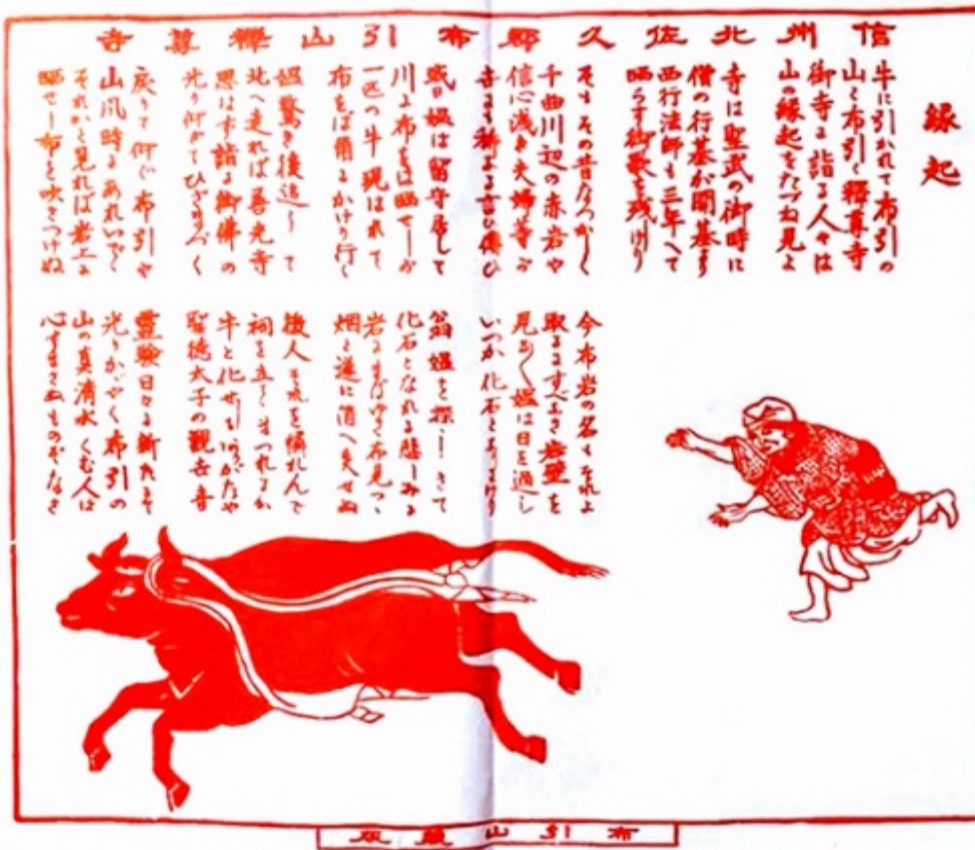 信州北佐久郡布引山釋尊寺
縁起
牛に引かれて布引の
山く布引く釋尊寺
御寺に詣る人々は
山の縁起をたつね見よ
寺は聖武の御時に
僧の行基が開基
西行法師も三年へて
晒らす御歌を残しけり
そもその昔
千曲川辺の赤岩や
信心浅き夫婦等が
言ひ傳ひ
或日媼は留守居して
川に布をば晒せしが
一匹の牛現はれて
布をば角にかけり行く
媼驚き後追ひて
北へ走れば善光寺
思はず詣る御佛の
光り仰ぎてひざまづく
戻りて仰ぐ布引や
山風時にあれいで
それかと見れば岩上に
晒せし布を吹きつけぬ
今布岩の名もそれよ
取るにすべなき岩壁を
見る媼は日を過し
いつか化石と
翁媼を探しきて
化石となれる悲しみに
岩布見つ
烟と遂に消へ失せぬ
後人
祠を立て
牛と化せ
聖徳太子の観世音
霊験日々に新たにて
光りかがやく布引の
山の真清水くむ人は
心すまさぬものぞなき
布引山